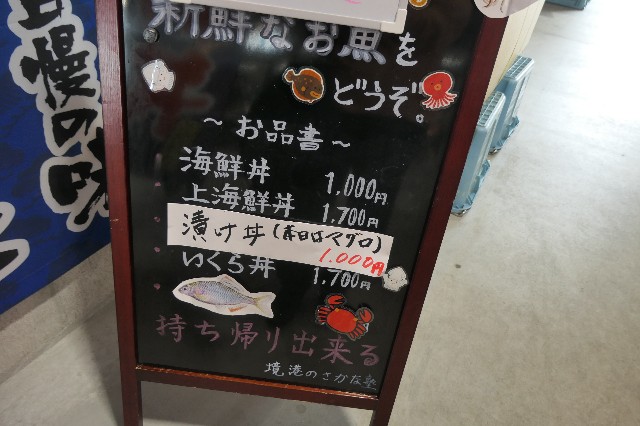 自慢の味
新鮮なお魚を
どうぞ。
～お品書～
海鮮丼 1,000円
上海鮮丼 1,700円
漬け丼(本日はマグロ)
1,000円
いくら丼 1,700円
持ち帰り出来る
境港のさかな塾